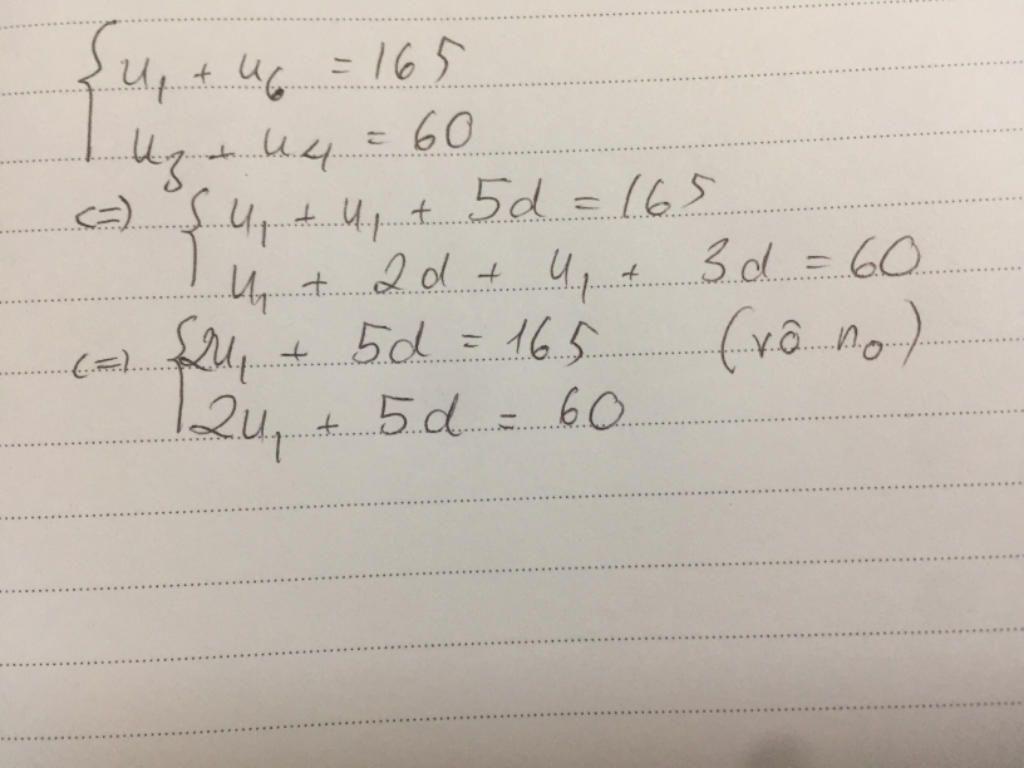 { u₁ + u₆ = 165
u₃ + u₄ = 60
<=> { u₁ + u₁ + 5d = 165
u₁ + 2d + u₁ + 3d = 60
<=> { 2u₁ + 5d = 165 (vô n₀)
2u₁ + 5d = 60